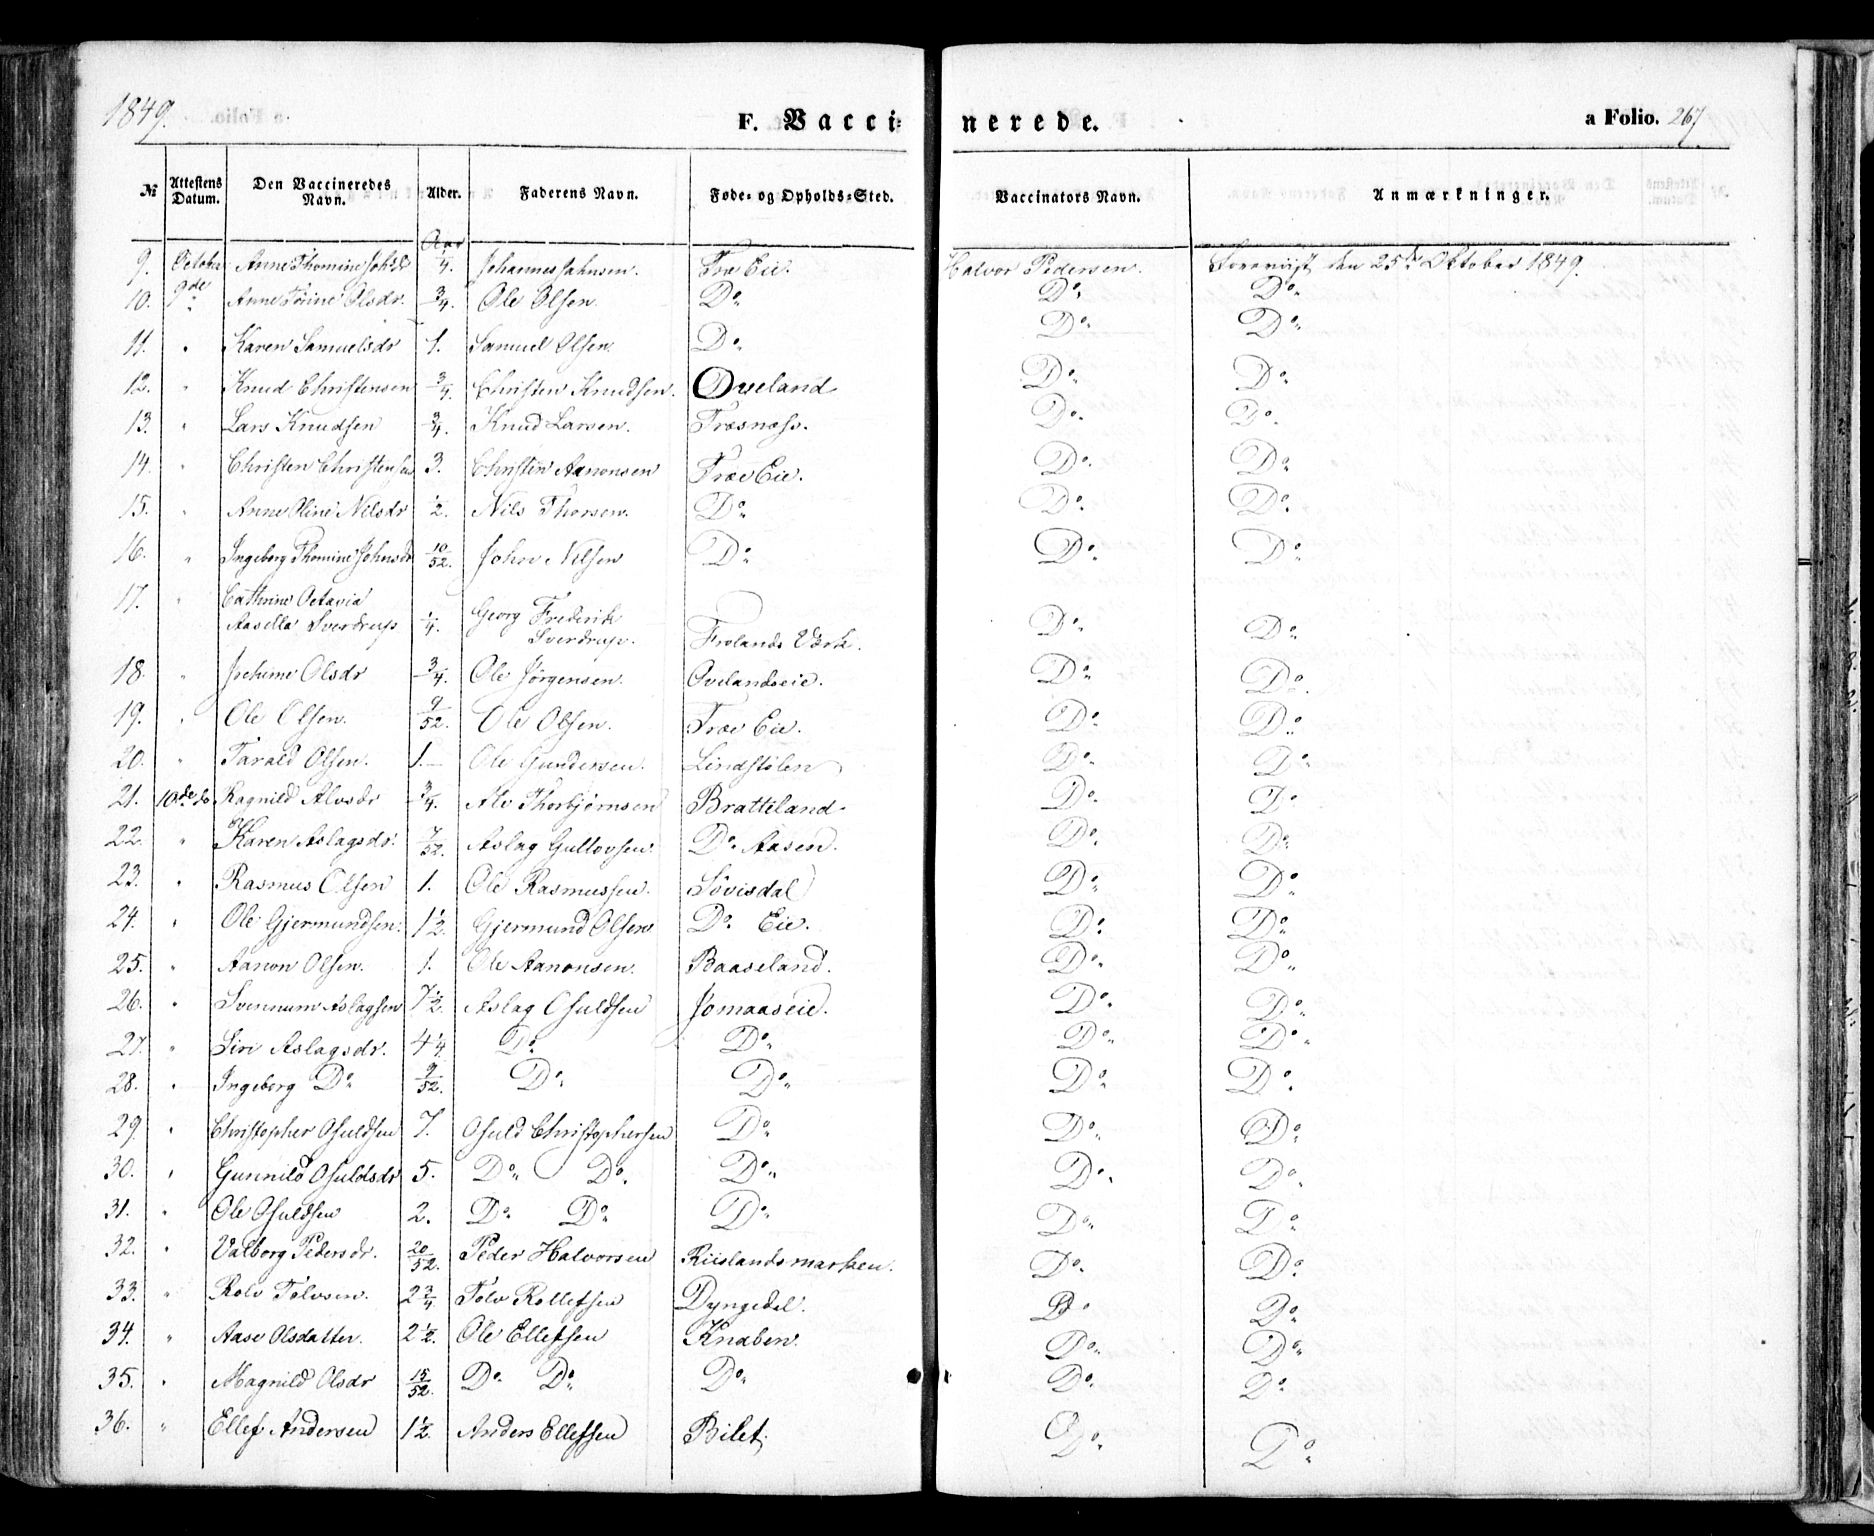 1849.
F. Vacci- nerede. a Folio. 267
№ Attestens Datum. Den Vaccineredes Navn. Alder. Faderens Navn. Føde- og Opholds-Sted. Vaccinators Navn. Anmærkninger.
Aar
9. October Anne Thomine Johsdr ¼. Johannes Johnsen. Træ Eie. Halvor Pedersen. Foreviist den 25de Oktober 1849.
10. 9de Anne Tirine Olsdr. ¾. Ole Olsen. Do Do Do
11. " Karen Samuelsdr 1. Samuel Olsen. Do Do Do
12. " Knud Christensen ¾. Christen Knudsen. Oveland Do Do
13. " Lars Knudsen ¾. Knud Larsen. Træsnæss. Do Do
14. " Christen Christensen 3. Christen Aanonsen Træe Eie. Do Do
15. " Anne Oline Nilsdr ½. Nils Thorsen. Do Do Do
16. " Ingeborg Thomine Johnsdr 10/52. John Nilsen Do Do Do
17. " Cathrine Octavia
Aasella Sverdrup ¼. Georg Frederik
Sverdrup. Frolands Værk. Do Do
18. " Jochime Olsdr ¾. Ole Jörgensen. Ovelandseie. Do Do
19. " Ole Olsen. 9/52. Ole Olsen. Træe Eie. Do Do
20. " Tarald Olsen. 1. Ole Gundersen. Lindstølen Do Do
21. 10de do. Ragnild Alvsdr ¾. Alv Thorbjørnsen Bratteland Do Do
22. " Karen Aslagsdr. 7/52. Aslag Gullovsen. Do Aasen. Do Do
23. " Rasmus Olsen 1. Ole Rasmussen. Lövisdal Do Do
24. " Ole Gjermundsen. 1½. Gjermund Olsen Do Eie. Do Do
25. " Aanon Olsen. 1. Ole Aanonsen. Baaseland. Do Do
26. " Svennum Aslagsen 7½. Aslag Osuldsen Jomaaseie. Do Do
27. " Siri Aslagsdr. 4¼ Do Do Do Do
28. " Ingeborg Do 9/52. Do Do Do Do
29. " Christopher Osuldsen 7. Osuld Christophersen Do Do Do
30. " Gunnild Osuldsdr 5. Do Do Do Do Do
31. " Ole Osuldsen 2. Do Do Do Do Do
32. " Valborg Pedersdr. 20/52. Peder Halvorsen Riislandsmarken. Do Do
33. " Rolv Tolvsen. 2¾ Tolv Rollefsen Dyngedal. Do Do
34. " Aase Olsdatter. 2½. Ole Ellefsen Knaben. Do Do
35. " Magnild Olsdr 15/52. Do Do Do Do Do
36. " Ellef Andersen 1½. Anders Ellefsen Bilet. Do Do